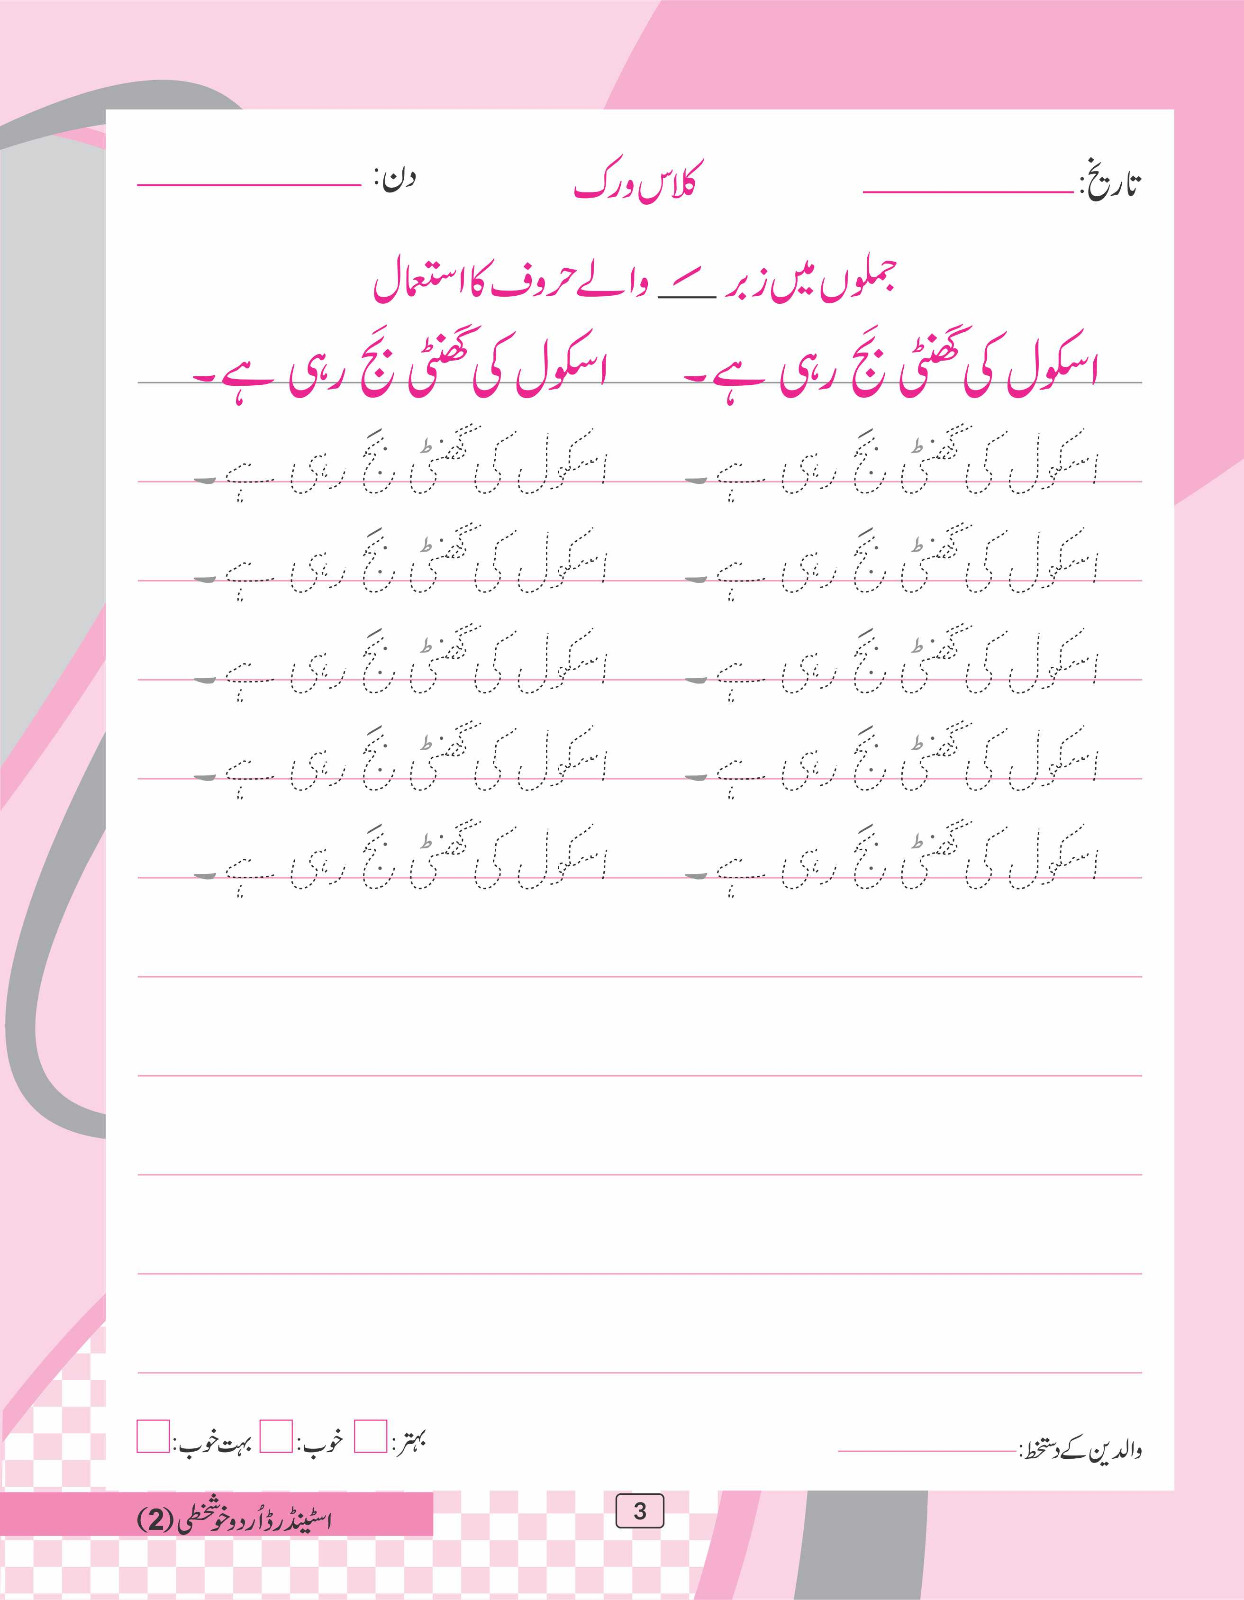 تاریخ: ________ کلاس ورک دن: ________
جملوں میں زبر ـَ والے حروف کا استعمال
اسکول کی گھنٹی بَج رہی ہے۔ اسکول کی گھنٹی بَج رہی ہے۔
اسکول کی گھنٹی بَج رہی ہے۔ اسکول کی گھنٹی بَج رہی ہے۔
اسکول کی گھنٹی بَج رہی ہے۔ اسکول کی گھنٹی بَج رہی ہے۔
اسکول کی گھنٹی بَج رہی ہے۔ اسکول کی گھنٹی بَج رہی ہے۔
اسکول کی گھنٹی بَج رہی ہے۔ اسکول کی گھنٹی بَج رہی ہے۔
اسکول کی گھنٹی بَج رہی ہے۔ اسکول کی گھنٹی بَج رہی ہے۔
والدین کے دستخط: ________ بہتر: خوب: بہت خوب:
3
اسٹینڈرڈ اُردو خوشخطی (2)